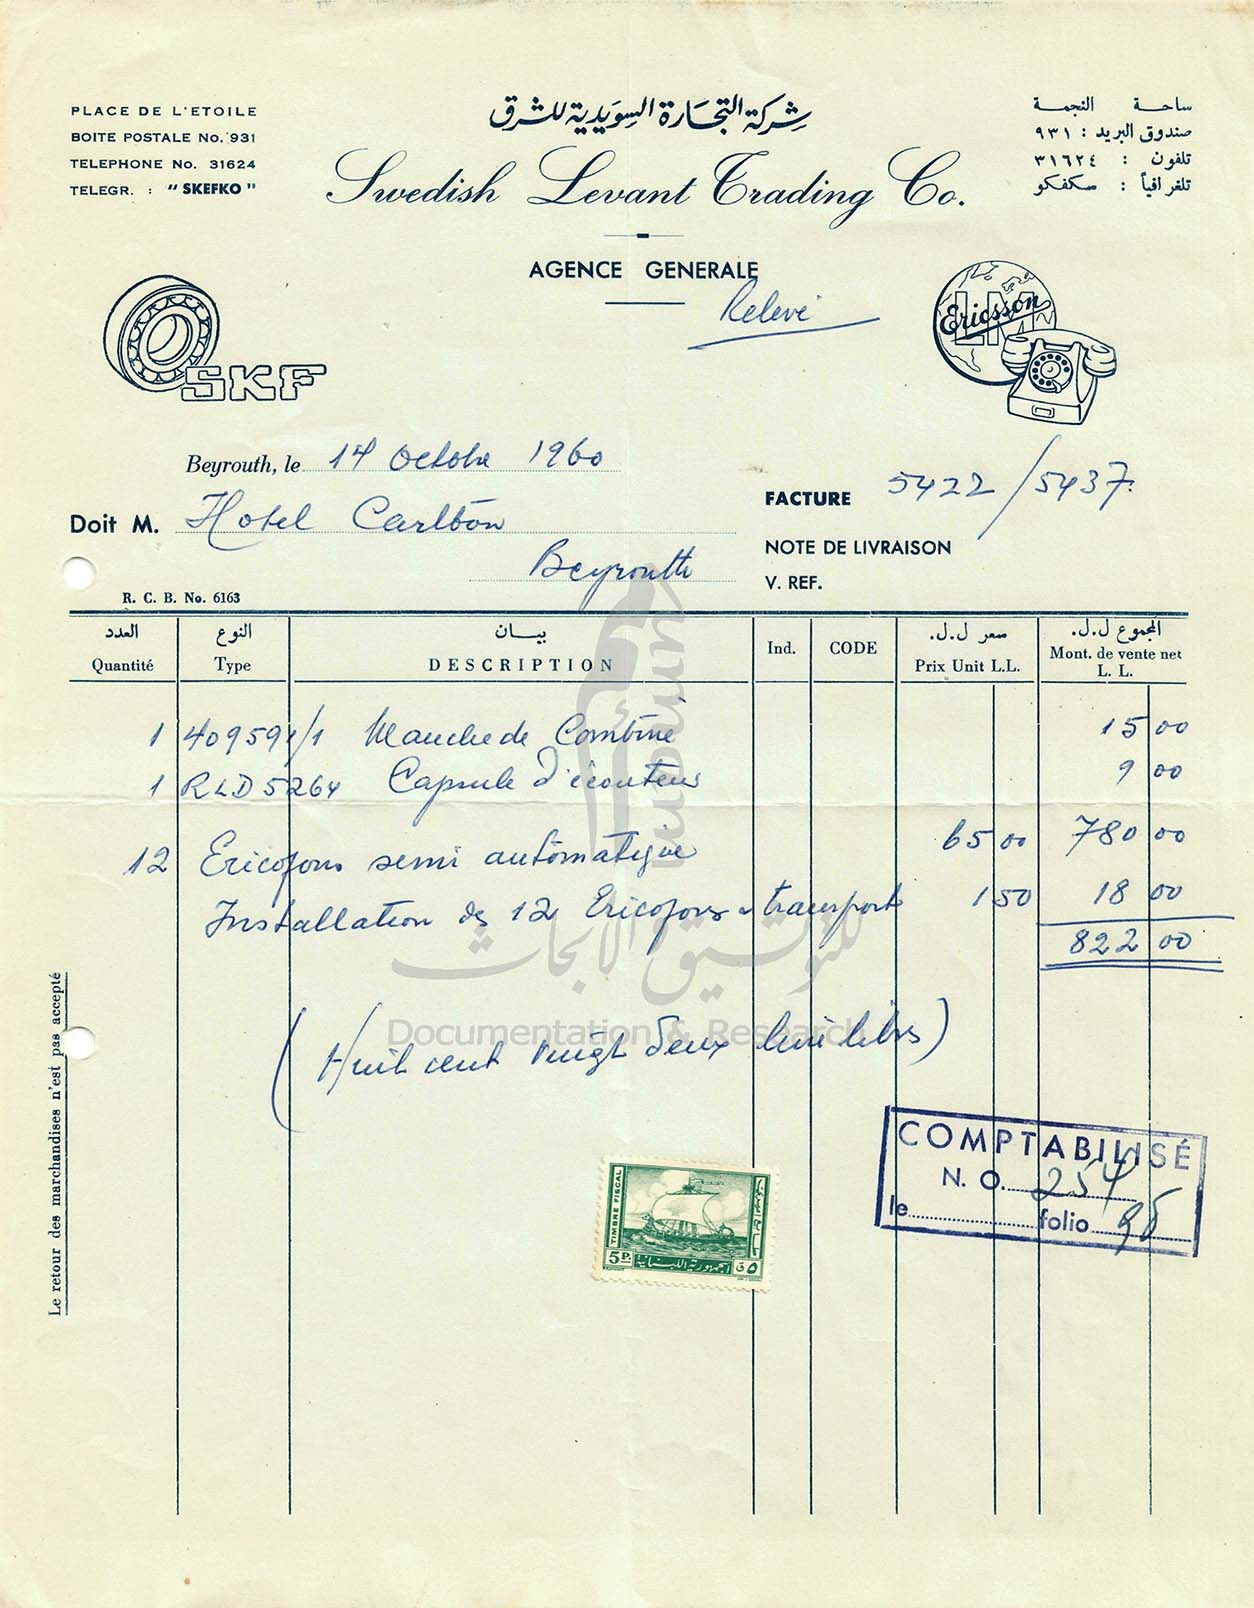 PLACE DE L'ETOILE
BOITE POSTALE No. 931
TELEPHONE No. 31624
TELEGR. : "SKEFKO"
شركة التجارة السويدية للشرق
Swedish Levant Trading Co.
AGENCE GENERALE
Relevé
ساحة النجمة
صندوق البريد : ٩٣١
تلفون : ٣١٦٢٤
تلغرافياً : سكفكو
SKF
LM Ericsson
Beyrouth, le 14 Octobre 1960
Doit M. Hotel Carlton
Beyrouth
R. C. B. No. 6163
FACTURE 5422/5437
NOTE DE LIVRAISON
V. REF.
العدد النوع بيان سعر ل.ل. المجموع ل.ل.
Quantité Type DESCRIPTION Ind. CODE Prix Unit L.L. Mont. de vente net L. L.
1 409591/1 Manche de Combiné 15 00
1 RLD 5264 Capsule d'écouteur 9 00
12 Ericofons semi automatique 65 00 780 00
Installation des 12 Ericofons transport 1 50 18 00
822 00
(Huit cent vingt deux livres libs)
COMPTABILISÉ
N. O. 254
le folio 98
TIMBRE FISCAL
5 P.
الجمهورية اللبنانية
٥ ق
Le retour des marchandises n'est pas accepté
umam
أمم
للتوثيق و الأبحاث
Documentation & Research